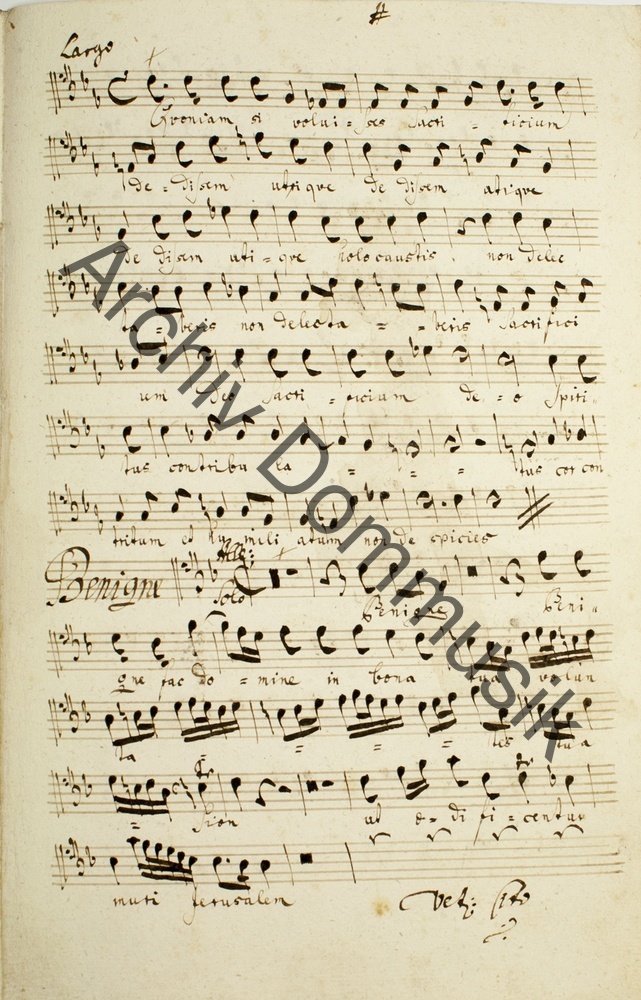 Largo
Qvoniam si volui = ses sacri - ficium
de = disem utique de disem utique
de disem uti = qve holocaustis. non delec
ta = beris non delecta = = beris Sacrifici
um Deo sacri - ficium de = o Spiri
tus contribu la = = = tus cor con
tritum et humili atum non de spicies
All:
Benigne Solo Benigne Beni =
gne fac do = mine in bona tua volun
ta = = = = tes tua
= Sion ut e = di fi = centur
muri Jerusalem
Vert: Cito
Archiv Dommusik